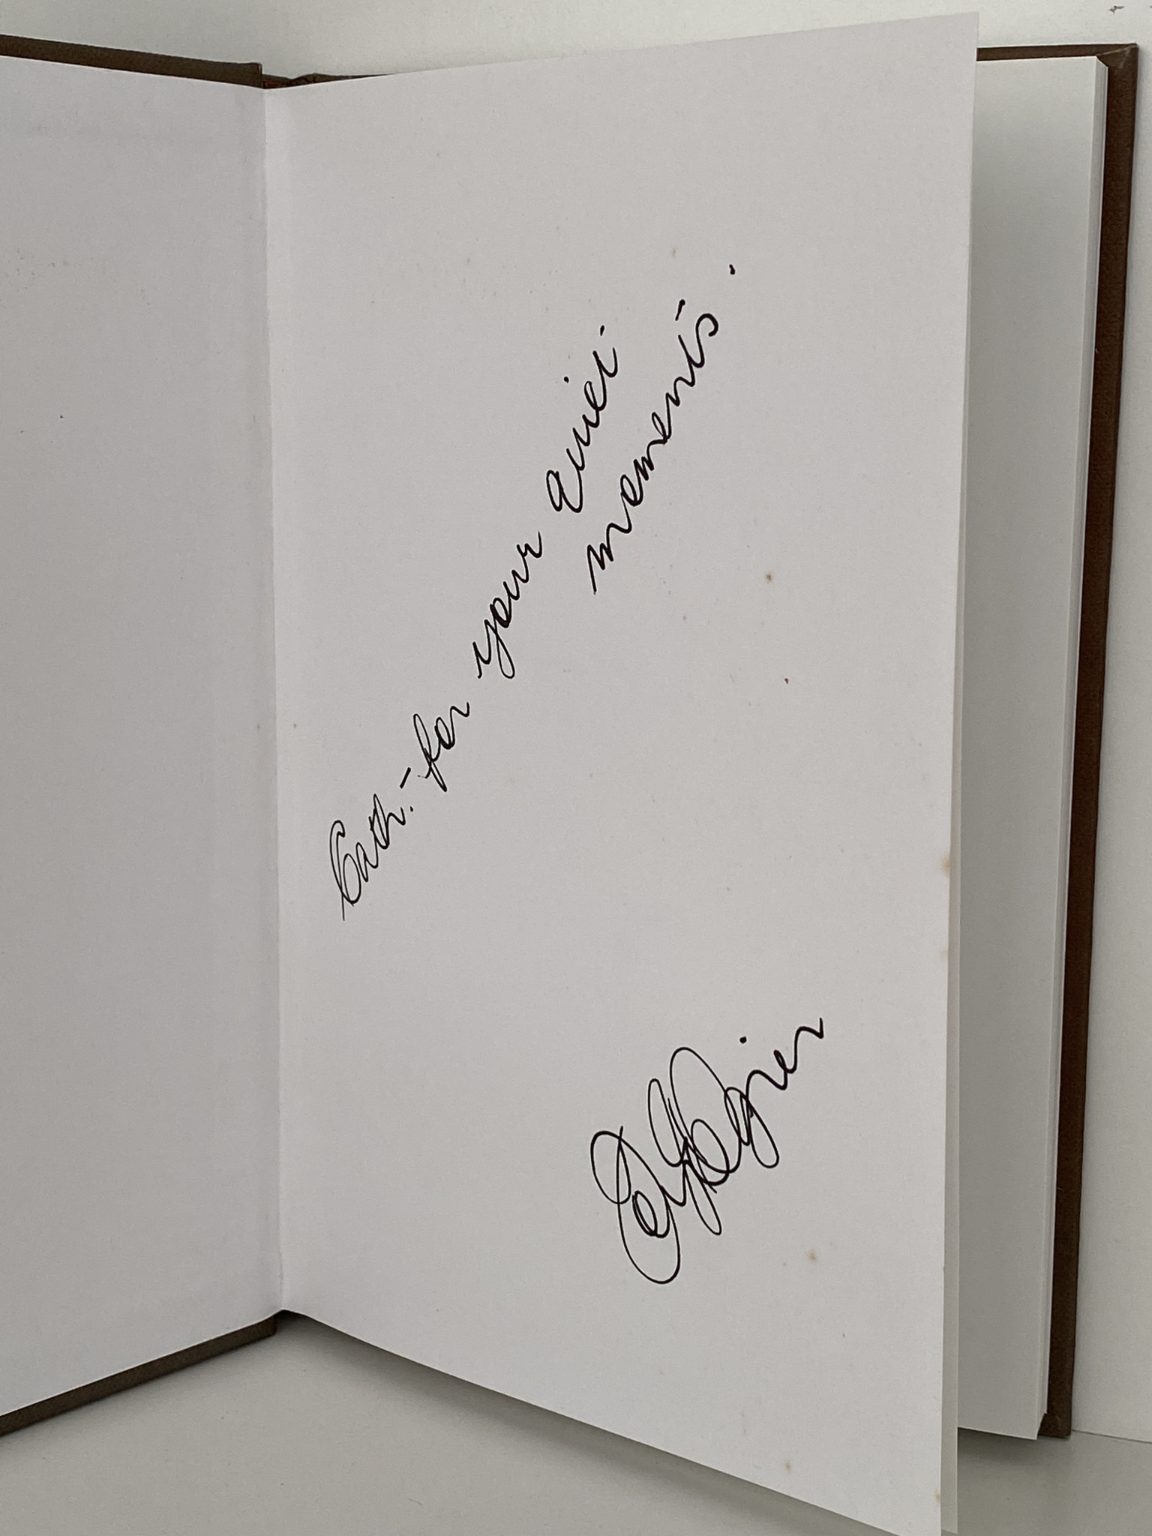 Cath. - for your quiet
moments.